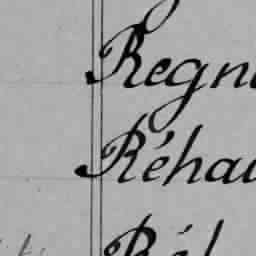 Regn
Réhau
Rél